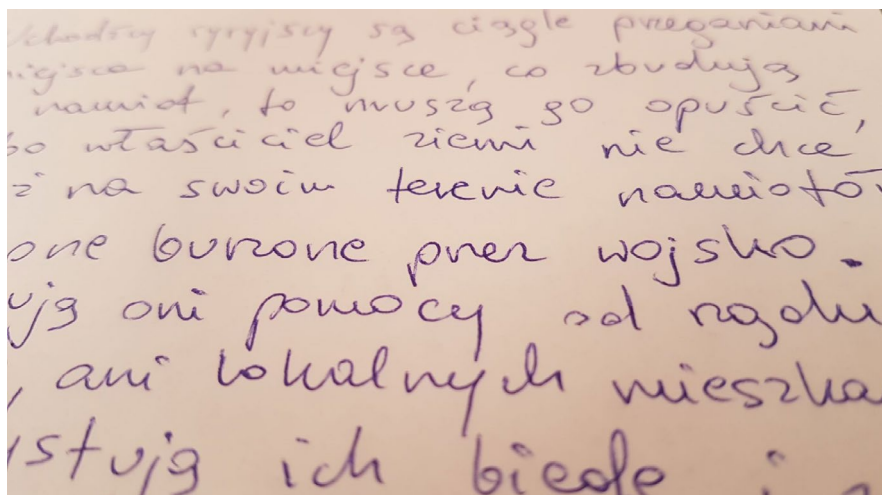 uchodźcy syryjscy są ciągle przeganiani
miejsca na miejsce, co zbudują
namiot, to muszą go opuścić,
bo właściciel ziemi nie chce
na swoim terenie namiotów
one burzone przez wojsko.
ują oni pomocy od rządu
, ani lokalnych mieszka
ystują ich biedę i